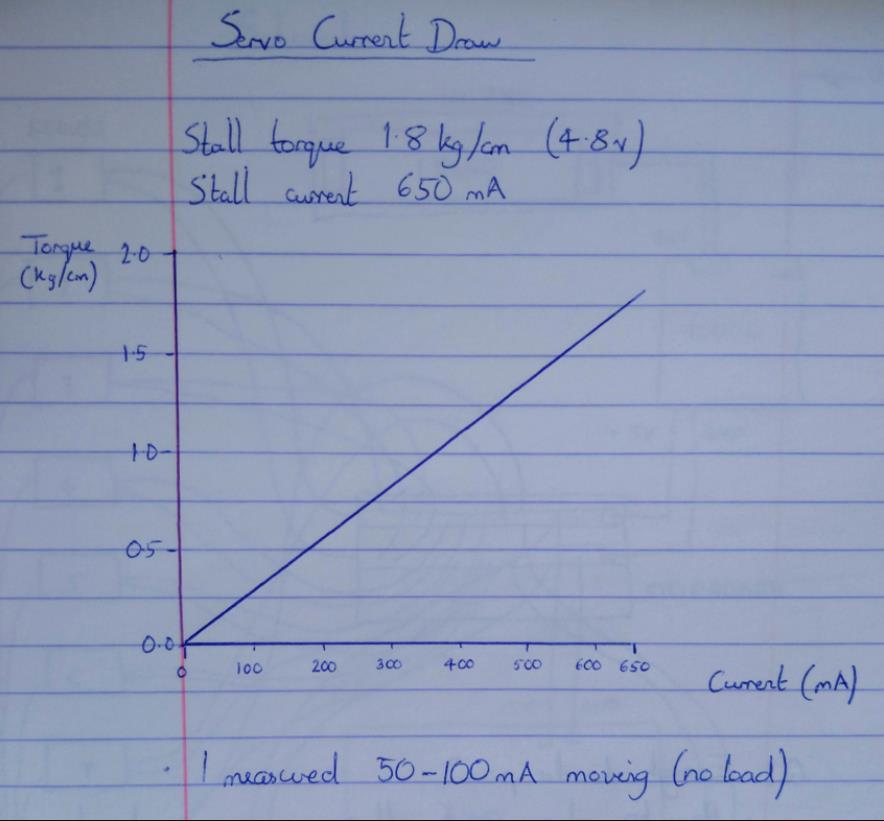 Servo Current Draw
Stall torque 1.8 kg/cm (4.8v)
Stall current 650 mA
Torque
(kg/cm)
2.0
1.5
1.0
0.5
0.0
0 100 200 300 400 500 600 650
Current (mA)
· I measured 50-100mA moving (no load)